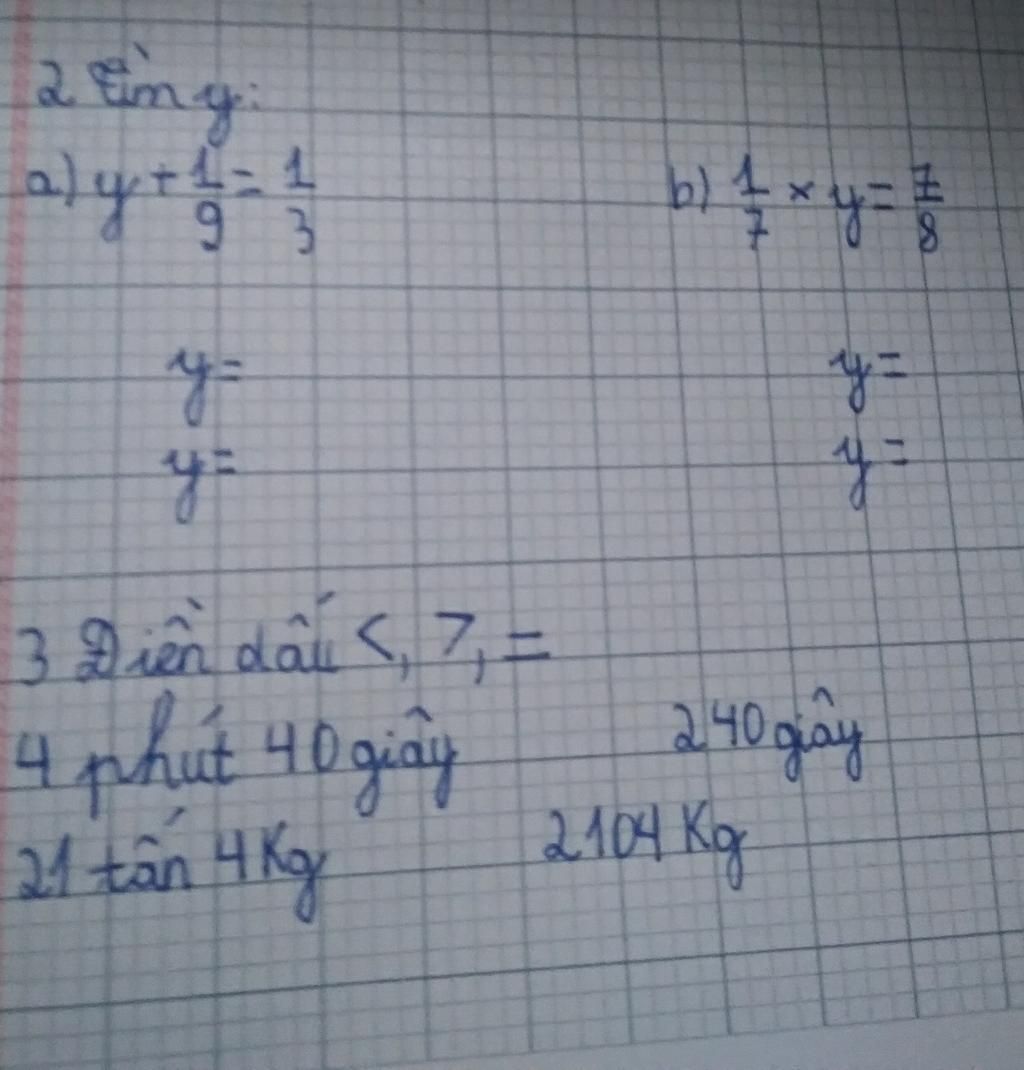 2 Tìm y:
a) y + 1/9 = 1/3 b) 1/7 × y = 7/8
y = y =
y = y =
3 Điền dấu <, >, =
4 phút 40 giây 240 giây
21 tấn 4 Kg 2104 Kg